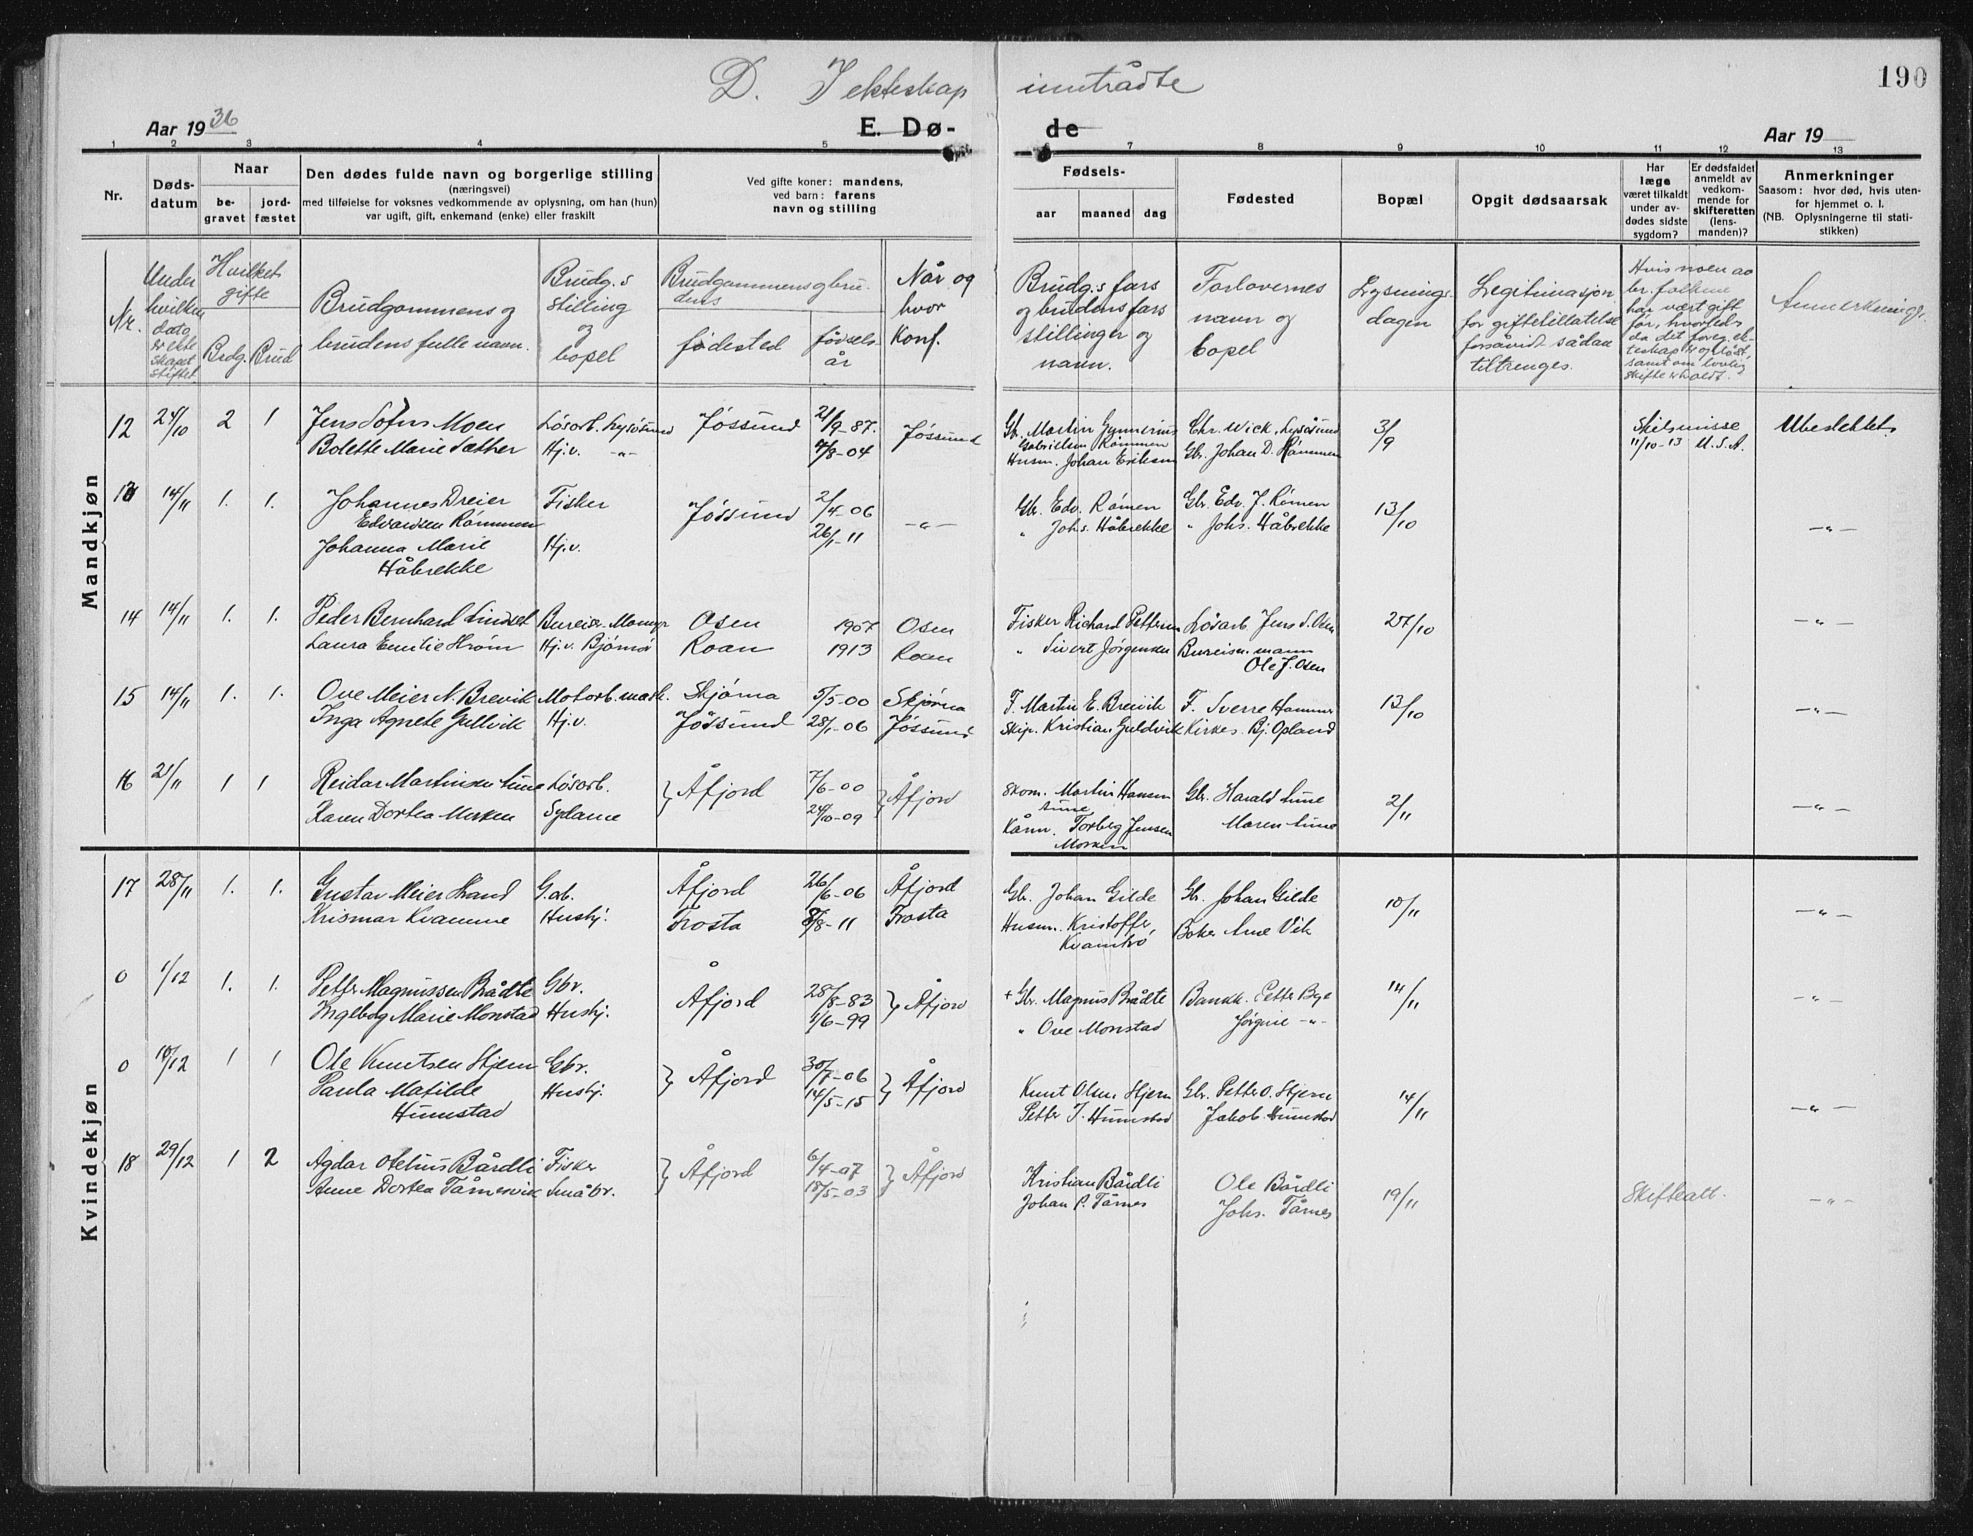 D. I ekteskap inntrådte
190
Aar 1936
E. Dø-
de
Aar 19
1 2 3 4 5 6 7 8 9 10 11 12 13
Nr.
Døds-
datum
Naar
be-
gravet
jord-
fæstet
Den dødes fulde navn og borgerlige stilling
(næringsvei)
med tilføielse for voksnes vedkommende av oplysning, om han (hun)
var ugift, gift, enkemand (enke) eller fraskilt
Ved gifte koner: mandens,
ved barn: farens
navn og stilling
Fødsels-
aar maaned dag
Fødested
Bopæl
Opgit dødsaarsak
Har
læge
været tilkaldt
under av-
dødes sidste
sygdom?
Er dødsfaldet
anmeldt av
vedkom-
mende for
skifteretten
(lens-
manden)?
Anmerkninger
Saasom: hvor død, hvis uten-
for hjemmet o. l.
(NB. Oplysningerne til stati-
stikken)
Nr.
Under
hvilken
dato
er ekte
skapet
stiftet
Hvilket
gifte
Brdg. Brud
Brudgommens og
brudens fulle navn.
Brudg.s
stilling
og
bopel
Brudgommens og bru-
dens
fødested
fødsels-
år
Når og
hvor
Konf.
Brudg.s fars
og brudens fars
stillinger og
navn.
Forlovernes
navn og
bopel
Lysnings-
dagen
Legitimasjon
for giftetillatelse
forsåvidt sådan
tiltrenges.
Hvis noen av
br. folkene
har vært gift
før, hvorleds
da det foreg. ek-
teskap er opløst,
samt om lovlig
skifte er holdt.
Anmerkninger
Mandkjøn
12 24/10 2 1 Jens Sofus Moen Løsarb. Lysøsund Jøssund 21/9-87. Jøssund Gb. Martin Gunnerius Chr. Wick, Lysøsund 3/9 Skilsmisse Ubeslektet
Gabrielsen Rømmen
Bolette Marie Sæther Hj.v. -"- 4/8-04 Husm. Johan Eriksen Gb. Johan D. Rømmen 11/10-13 U.S.A.
13 14/11 1. 1. Johannes Dreier Fisker Jøssund 2/4-06 -"- Gb. Edv. Rømen Gbr. Edv. J. Rømen 13/10 -"-
Edvardsen Rømmen
Johanna Marie Hj.v. 26/1-11 " Johs. Håbrekke " Johs. Håbrekke
Håbrekke
14 14/11 1. 1. Peder Bernhard Lindset Bureiser Momyr Osen 1907 Osen Fisker Richard Pettersen Løsarb Jens S. Osen 27/10 -"-
Laura Emilie Strøm Hj.v. Bjørnør Roan 1913 Roan " Sivert Jørgensen Bureisn. mann
Ole J. Osen
15 14/11 1. 1. Ove Meier N. Brevik Motorb. mask. Skjørna 5/5-00 Skjørna F. Martin E. Breivik F. Sverre Hammer 13/10 -"-
Inga Agnete Gullvik Hj.v. Jøssund 28/1-06 Jøssund Skip. Kristian Guldvik Kirkes. Bj. Opland
16 21/11 1 1 Reidar Martinsen Sune Løsarb. } Åfjord 7/6-00 } Åfjord Skom. Martin Hansen Gb. Harald Sune 2/11 -"-
Sune
Karen Dortea Morken Sydame 24/10-09 Kånn. Torberg Jensen Maren Sune
Morken
Kvindekjøn
17 28/11 1. 1. Gustav Meier Strand G.ab. Åfjord 26/6-06 Åfjord Gb. Johan Gilde Gb. Johan Gilde 10/11 -"-
Krismar Kvamme Hushj. Frosta 8/8-11 Frosta Husm. Kristoffer Baker Arne Vik
Kvamtrø
0 1/12 1. 1. Petter Magnussen Brådte Gbr. Åfjord 28/8-83 } Åfjord + Gbr. Magnus Brådte Bankk. Petter Bye 14/11 -"-
Ingeborg Marie Monstad Hushj. 1/6-99 " Ove Monstad Jørgine -"-
0 10/12 1 1 Ole Knutsen Stjern Gbr. } Åfjord 30/7-06 } Åfjord Knut Olsen Stjern Gbr. Petter O. Stjern 14/11 -"-
Paula Matilde Hushj. 14/5-15 Petter I. Humstad Jakob Humstad
Humstad
18 29/12 1 2 Agdar Otelius Bårdli Fisker } Åfjord 6/4-07 } Åfjord Kristian Bårdli Ole Bårdli 19/11 Skifteatt. -"-
Anne Dortea Tårnesvik Småbr. 18/5-03 Johan P. Tårnes Johs. Tårnes